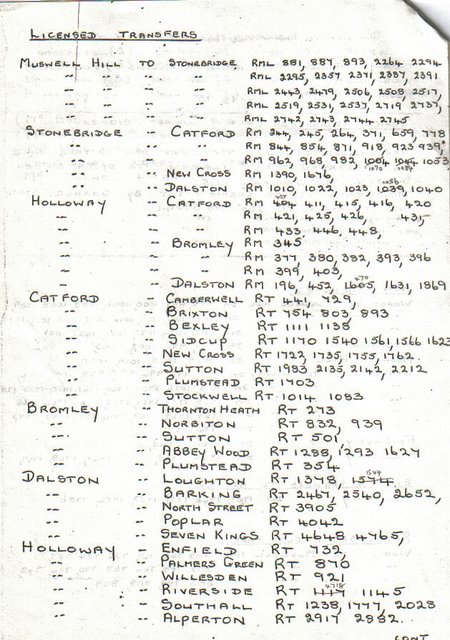 LICENSED TRANSFERS
MUSWELL HILL TO STONEBRIDGE RML 881, 887, 893, 2264 2294
" " " " RML 2295, 2357 2371, 2387, 2391
" " " " RML 2443, 2479, 2506, 2508 2517,
" " " " RML 2519, 2531, 2537, 2719 2737,
" " " " RML 2742, 2743, 2744 2745
STONEBRIDGE " CATFORD RM 244, 245, 264, 371, 659, 778
" " " RM 844, 854, 871, 918, 923 939,
" " " RM 962, 968, 982, 1004 1053
" " NEW CROSS RM 1390, 1676, 1070 1084
" " DALSTON RM 1010, 1022, 1023, 1039, 1040
HOLLOWAY " CATFORD RM 404 411, 415, 416, 420
" " " RM 421, 425, 426, 431,
" " " RM 433 446, 448,
" " BROMLEY RM 345
" " " RM 377, 380, 382, 393, 396
" " " RM 399, 403,
" " DALSTON RM 196, 452, 1605, 1631, 1869
CATFORD " CAMBERWELL RT 441, 729,
" " BRIXTON RT 754 803, 893
" " BEXLEY RT 1111 1138
" " SIDCUP RT 1170 1540 1561, 1566 1623
" " NEW CROSS RT 1722, 1735, 1755, 1762.
" " SUTTON RT 1983 2135, 2142, 2212
" " PLUMSTEAD RT 1703
" " STOCKWELL RT 1014 1083
BROMLEY " THORNTON HEATH RT 273
" " NORBITON RT 832, 939
" " SUTTON RT 501
" " ABBEY WOOD RT 1288, 1293 1627
" " PLUMSTEAD RT 354
DALSTON " LOUGHTON RT 1378, 1574
" " BARKING RT 2467, 2540, 2652,
" " NORTH STREET RT 3905
" " POPLAR RT 4042
" " SEVEN KINGS RT 4648 4765,
HOLLOWAY " ENFIELD RT 732,
" " PALMERS GREEN RT 870
" " WILLESDEN RT 921
" " RIVERSIDE RT 1117 1145
" " SOUTHALL RT 1238, 1777, 2023
" " ALPERTON RT 2917 2882.
CONT